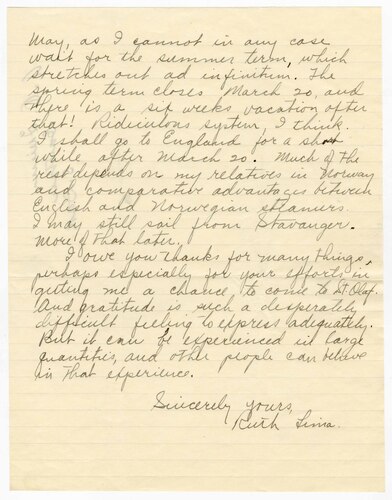 May, as I cannot in any case
wait for the summer term, which
stretches out ad infinitum. The
spring term closes March 20, and
there is a six weeks vacation after
that! Ridiculous system, I think.
I shall go to England for a short
while after March 20. Much of the
rest depends on my relatives in Norway
and comparative advantages between
English and Norwegian steamers.
I may still sail from Stavanger.
More of that later.
I owe you thanks for many things,
perhaps especially for your efforts in
getting me a chance to come to St. Olaf.
And gratitude is such a desperately
difficult feeling to express adequately.
But it can be experienced in large
quantities, and other people can believe
in that experience.
Sincerely yours,
Ruth Lima.